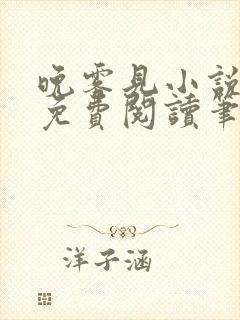 晚零見小說
免費閱讀筆
洋子涵